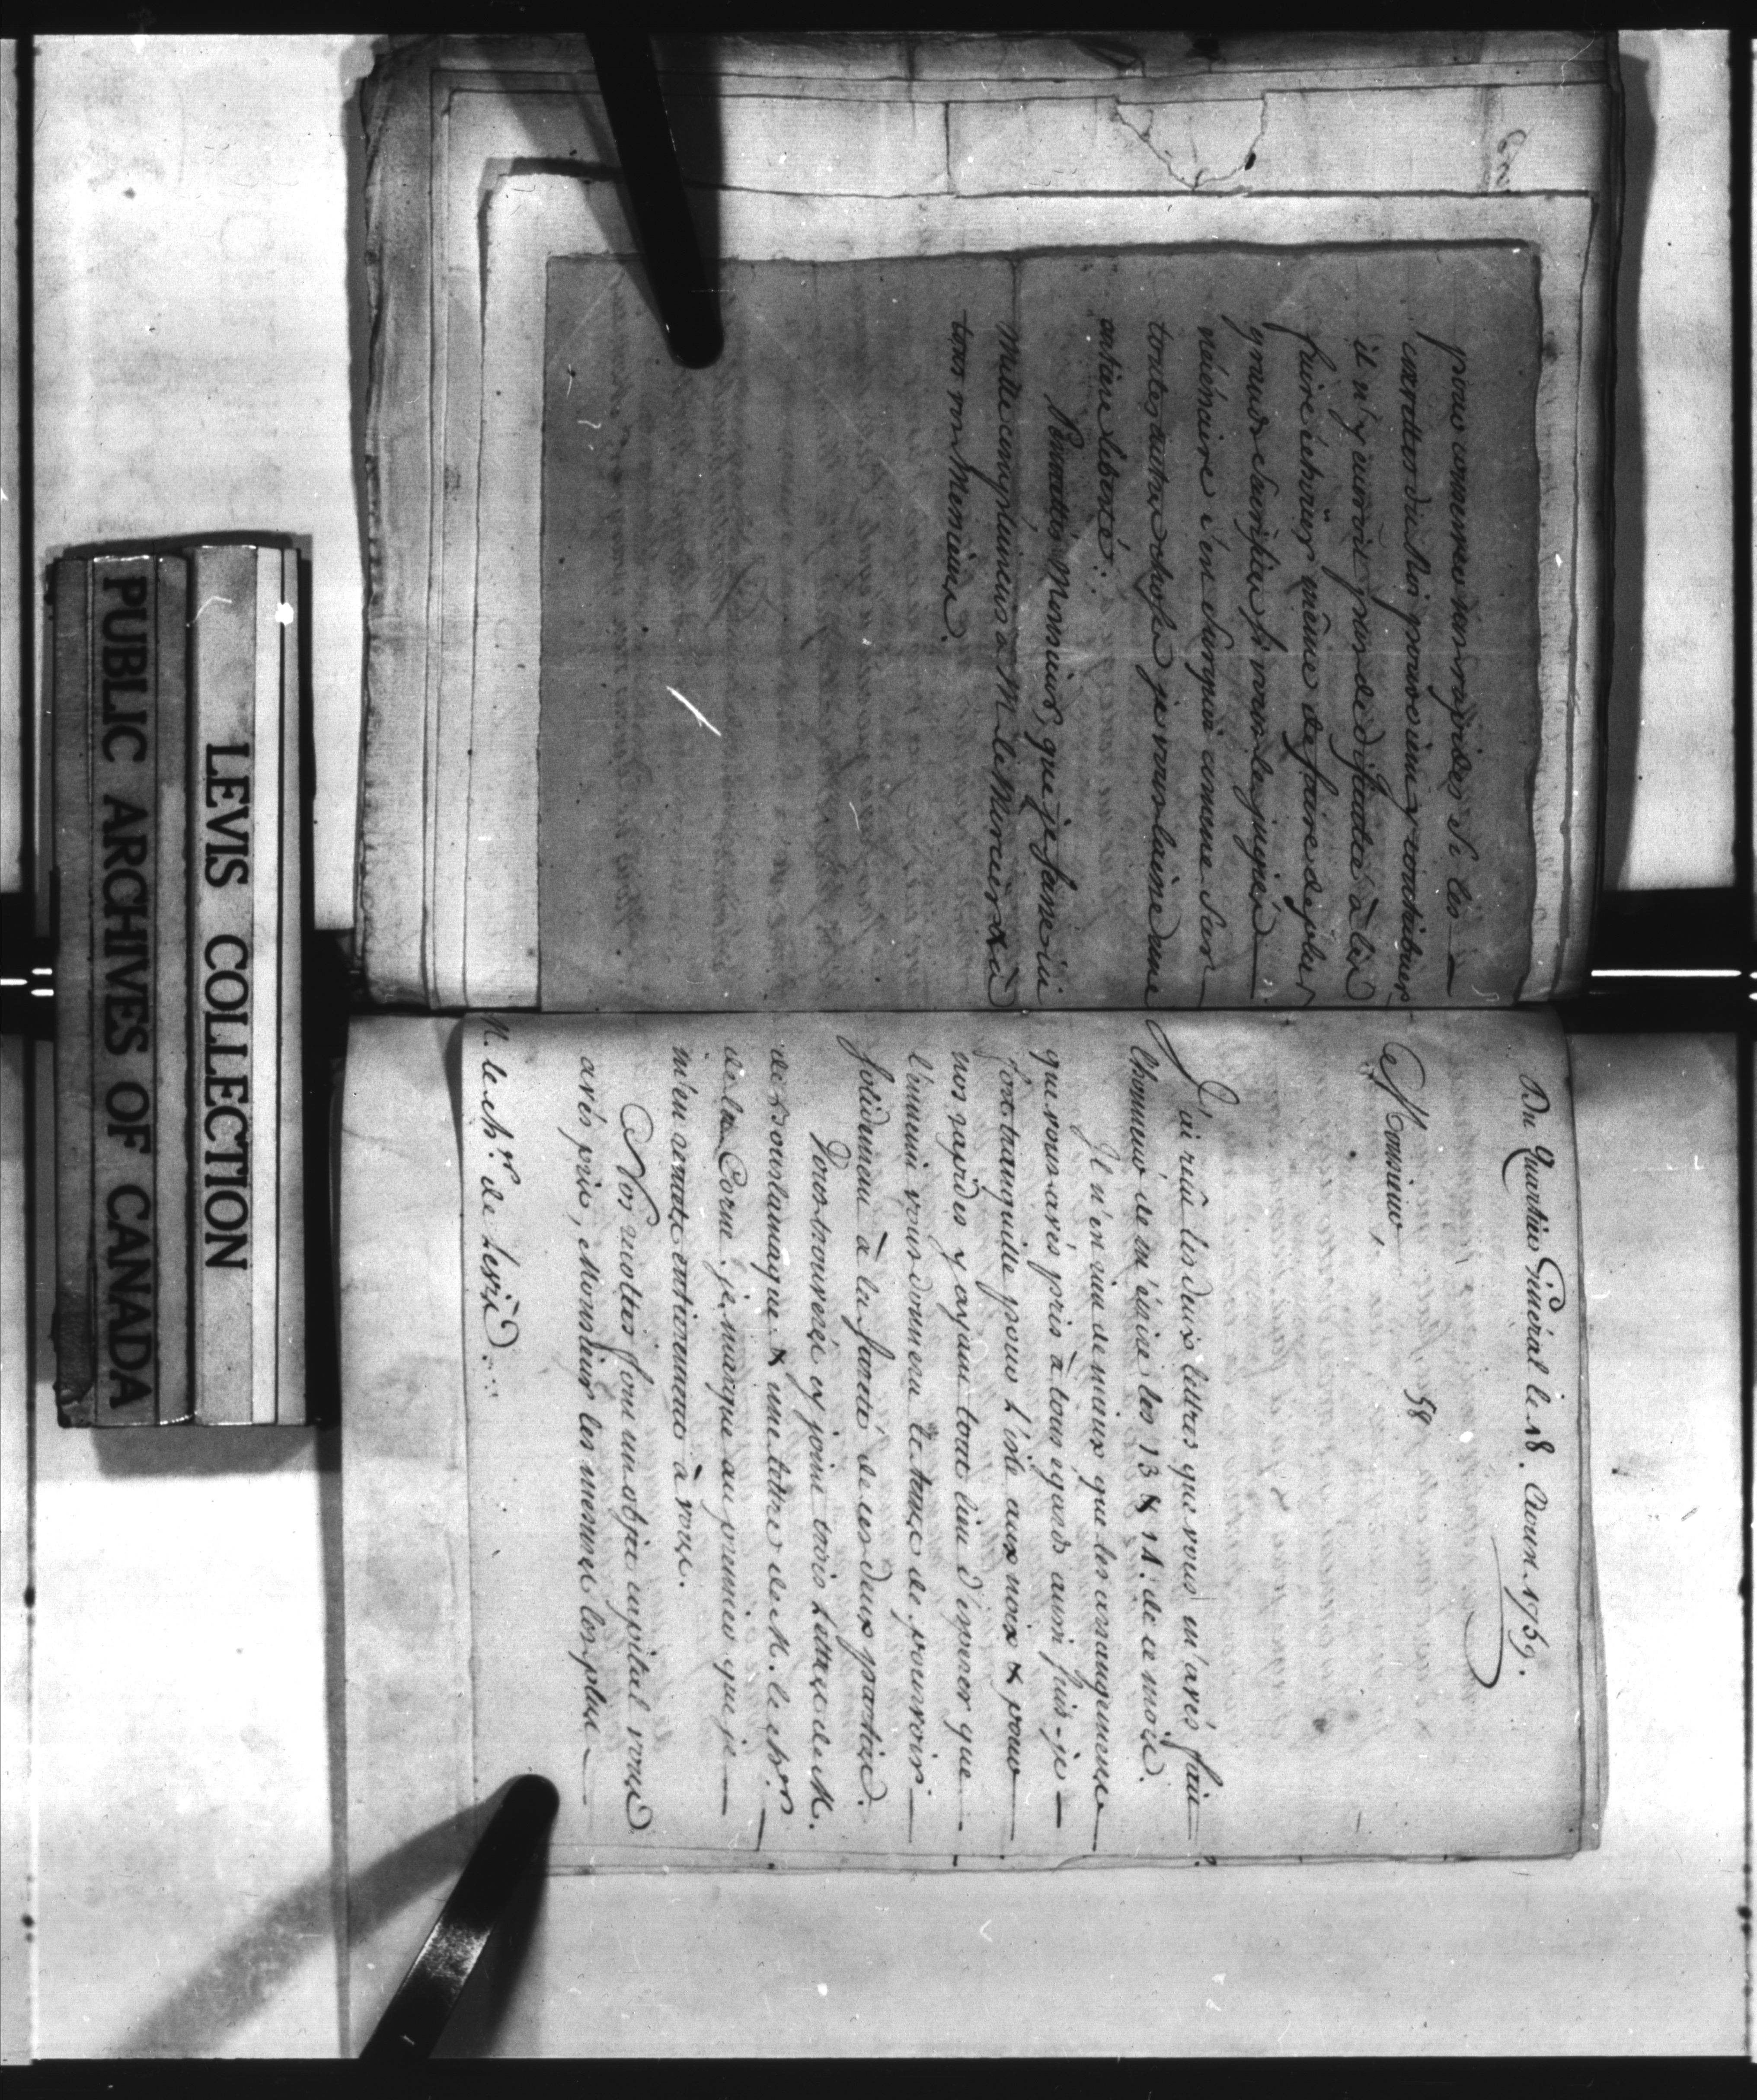 pour conserver nos rapides. Si les
corvettes du Roi pouvoient y contribuer
il n'y auroit pas de difficulté à les
faire échoüer même de faire de plus
grands Sacrifices si vous le jugiés
nécéssaire c'est Surquoi comme Sur
toutes autres choses je vous laisse une
entiere liberté.
Permettés Monsieur, que je fasse ici
mille complimens à M. le Mercier & à
tous vos Messieurs.
Du Quartier Général le 18. Aoust 1759.
58
Monsieur,
J'ai reçû les deux lettres que vous m'avés fait
l'honneur de m'écrire les 13 & 14. de ce mois.
Il n'est rien de mieux que les arrangemens
que vous avés pris à tous égards aussi suis-je
fort tranquille pour L'isle aux noix & pour
nos rapides y ayant tout lieu d'esperer que
l'ennemi vous donnera le tems de pourvoir
solidement à la sureté de ces deux parties.
Vous trouverés cy joint trois Lettres de M.
de Bourlamaque & une lettre de M. le ch.er
de la Corne. je marque au premier que je
m'en remets entierement à vous.
Nos recoltes sont un objet capital vous
avés pris, Monsieur les mesures les plus
M. le ch.er de Levis.
PUBLIC ARCHIVES OF CANADA
LEVIS COLLECTION